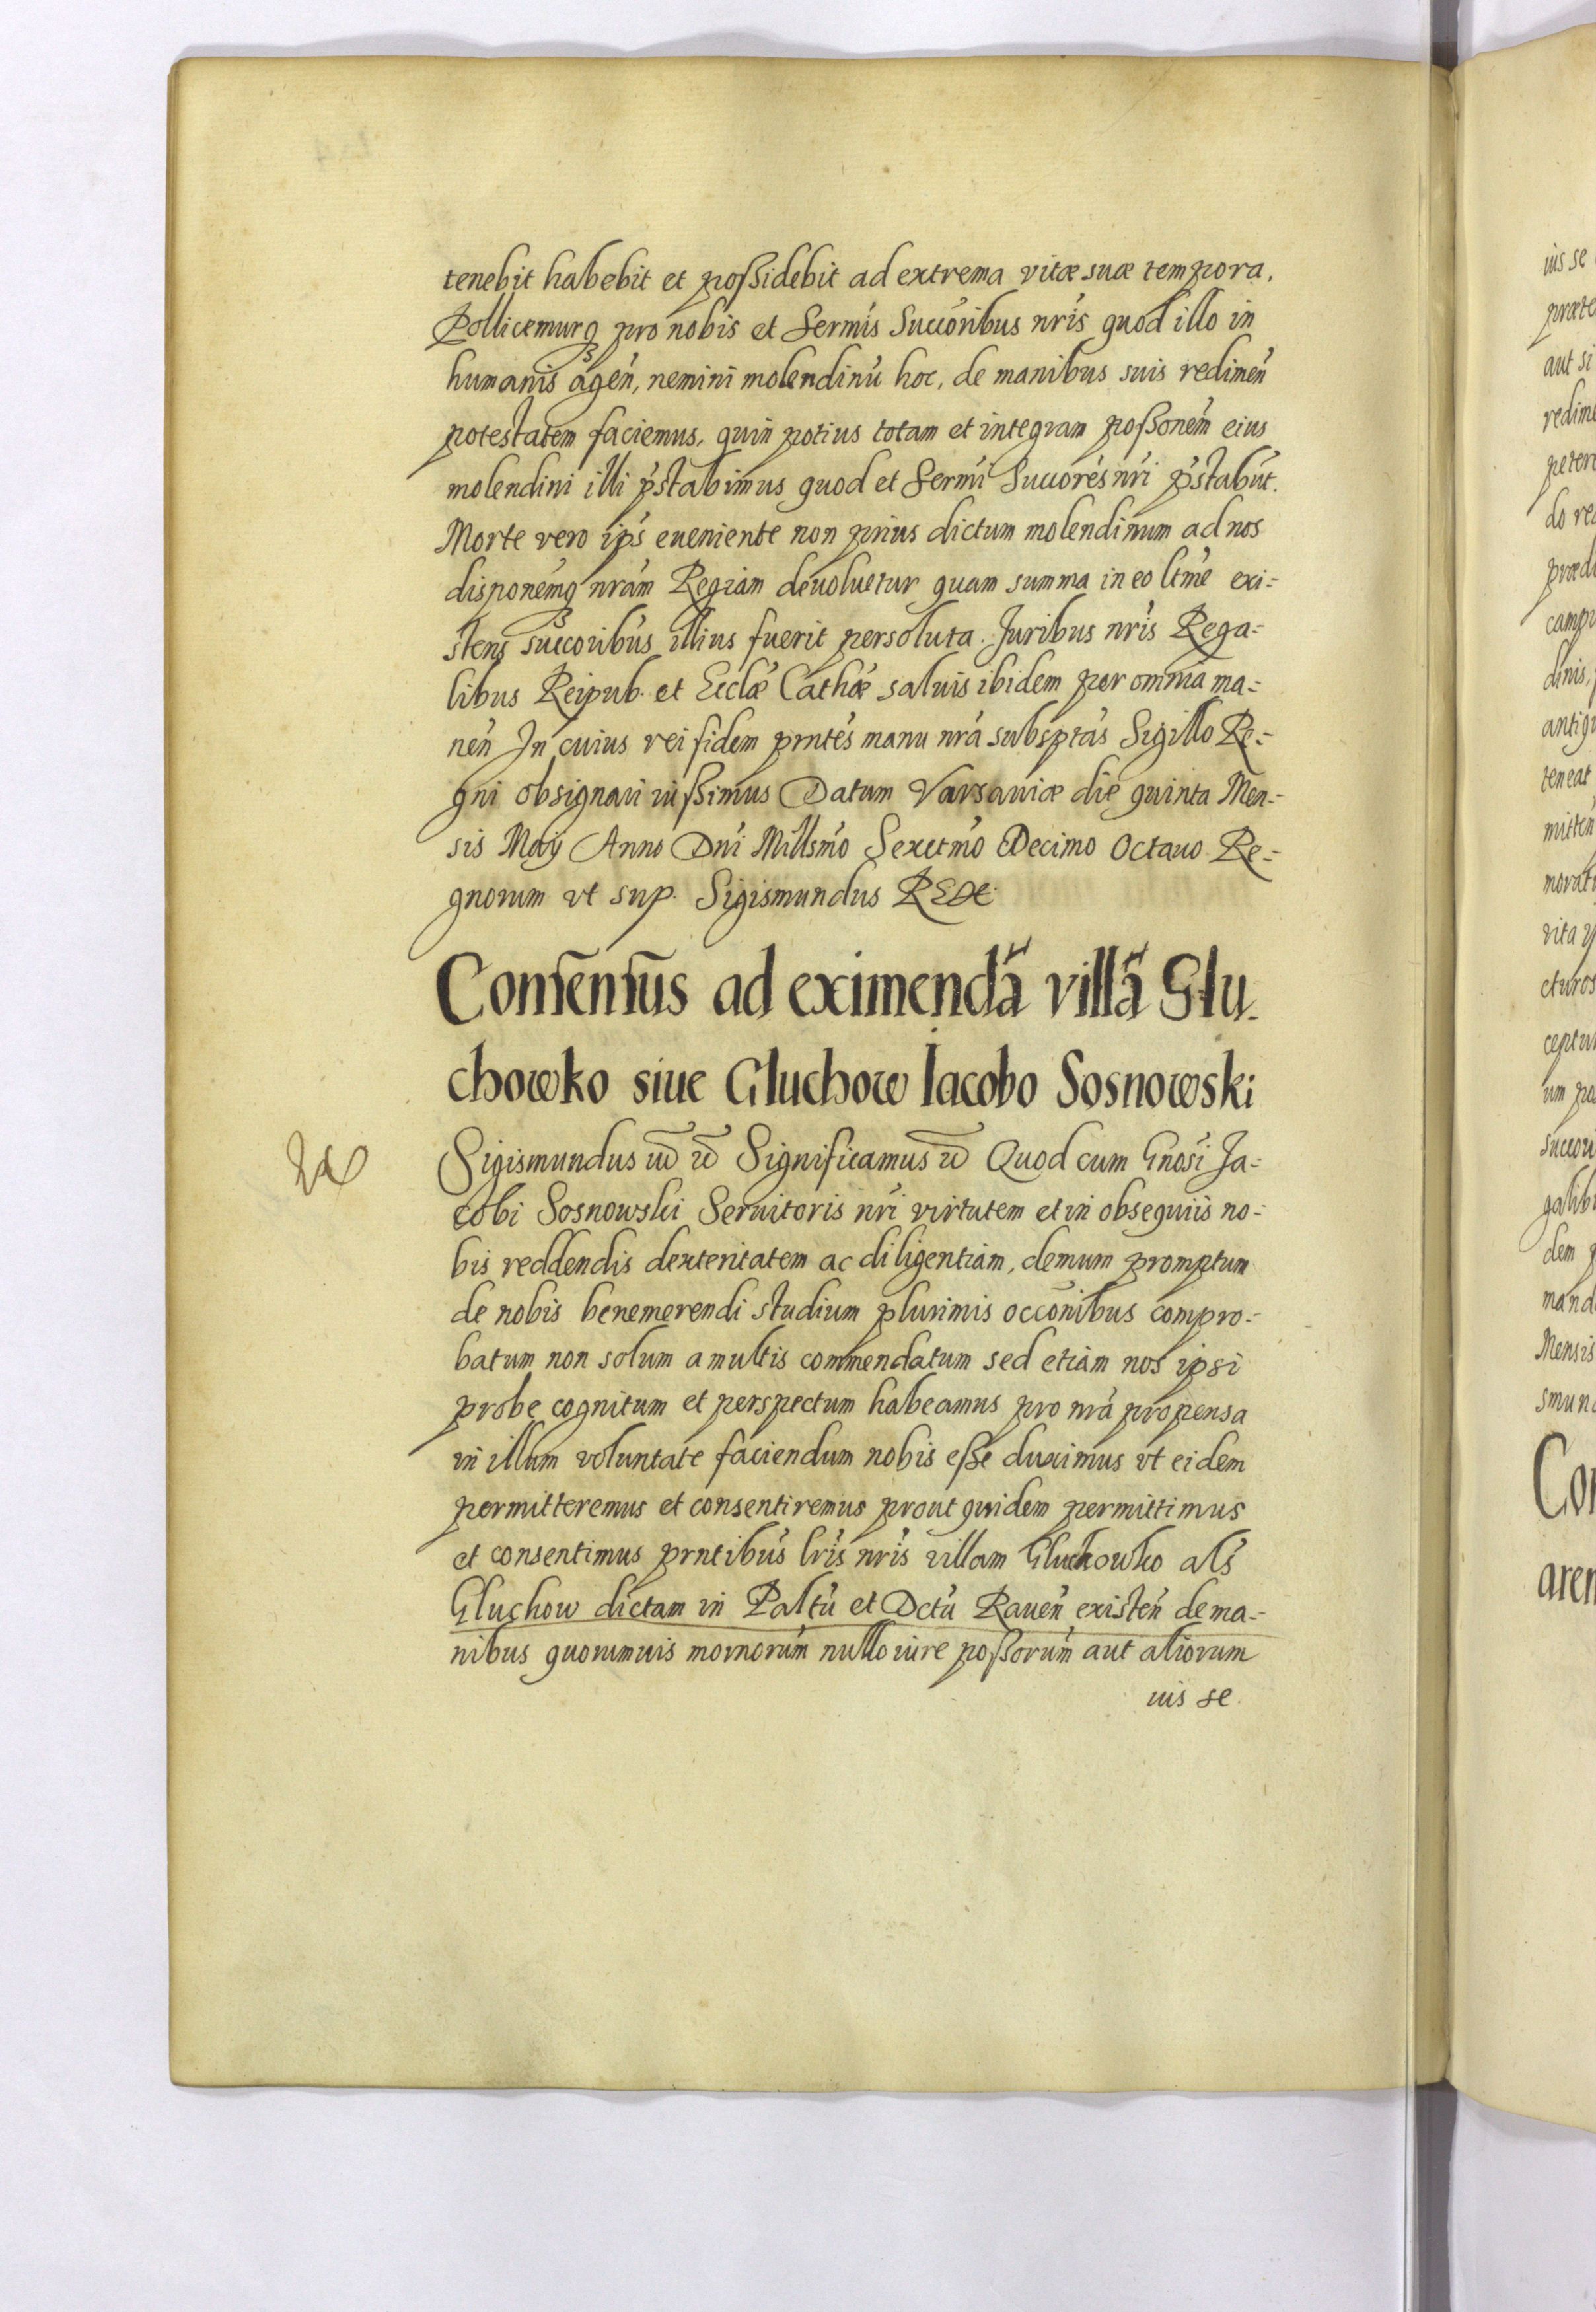 tenebit habebit et poßidebit ad extrema vitæ suæ tempora.
Pollicemurq3 pro nobis et Sermis Succoribus nris quod illo in
humanis agen, nemini molendinu hoc, de manibus suis redimen
potestatem faciemus, quin potius totam et integram poßonem eius
molendini illi pstabimus quod et Sermi Succores nri pstabut.
Morte vero ips eueniente non prius dictum molendinum ad nos
disponemq3 nram Regiam deuoluetur quam summa in eo ltme exi=
stens succoribus illius fuerit persoluta. Juribus nris Rega=
libus Reipub. et Ecclæ Cathæ saluis ibidem per omnia ma=
nen In cuius rei fidem prntes manu nra subsptas Sigillo Re=
gni obsignari iußimus Datum Varsauiæ die quinta Men=
sis Maij Anno Dni Millsmo Sexctmo Decimo Octauo Re=
gnorum vt sup. Sigismundus REX
Consensus ad eximendã villã Glu.
chowko siue Gluchow Iacobo Sosnowski
Sigismundus Significamus Quod cum Gnosi Ja=
cobi Sosnowski Seruitoris nri virtutem et in obsequiis no=
bis reddendis dexteritatem ac diligentiam, demum promptum
de nobis benemerendi studium plurimis occonibus compro=
batum non solum a multis commendatum sed etiam nos ipsi
probe cognitum et perspectum habeamus pro nra propensa
in illum voluntate faciendum nobis eße duximus vt eidem
permitteremus et consentiremus prout quidem permittimus
et consentimus prntibus lris nris villam Gluchowko als
Gluchow dictam in Paltu et Dctu Rauen existen de ma=
nibus quorumuis mornorum nullo iure poßorum aut aliorum
uis se.
ius se
præte
aut si
redime
peten
do re
prædi
campi
dinis,
antiqu
teneat
mitten
morat
vita
cturos
ceptu
um po
succori
galibu
dem p
mand
Mensis
smund
Con
aren